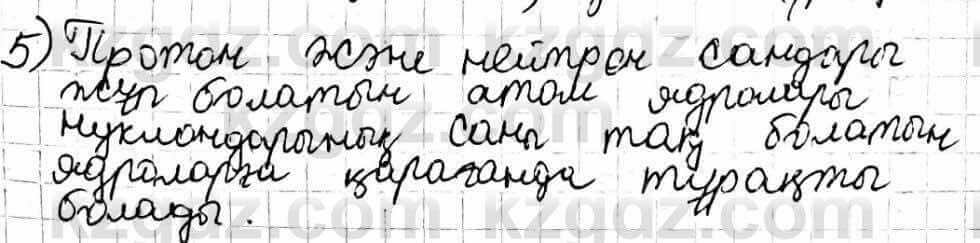 5) Протон және нейтрон сандары
жұп болатын атом ядролары
нуклондарының саны тақ болатын
ядроларға қарағанда тұрақты
болады.